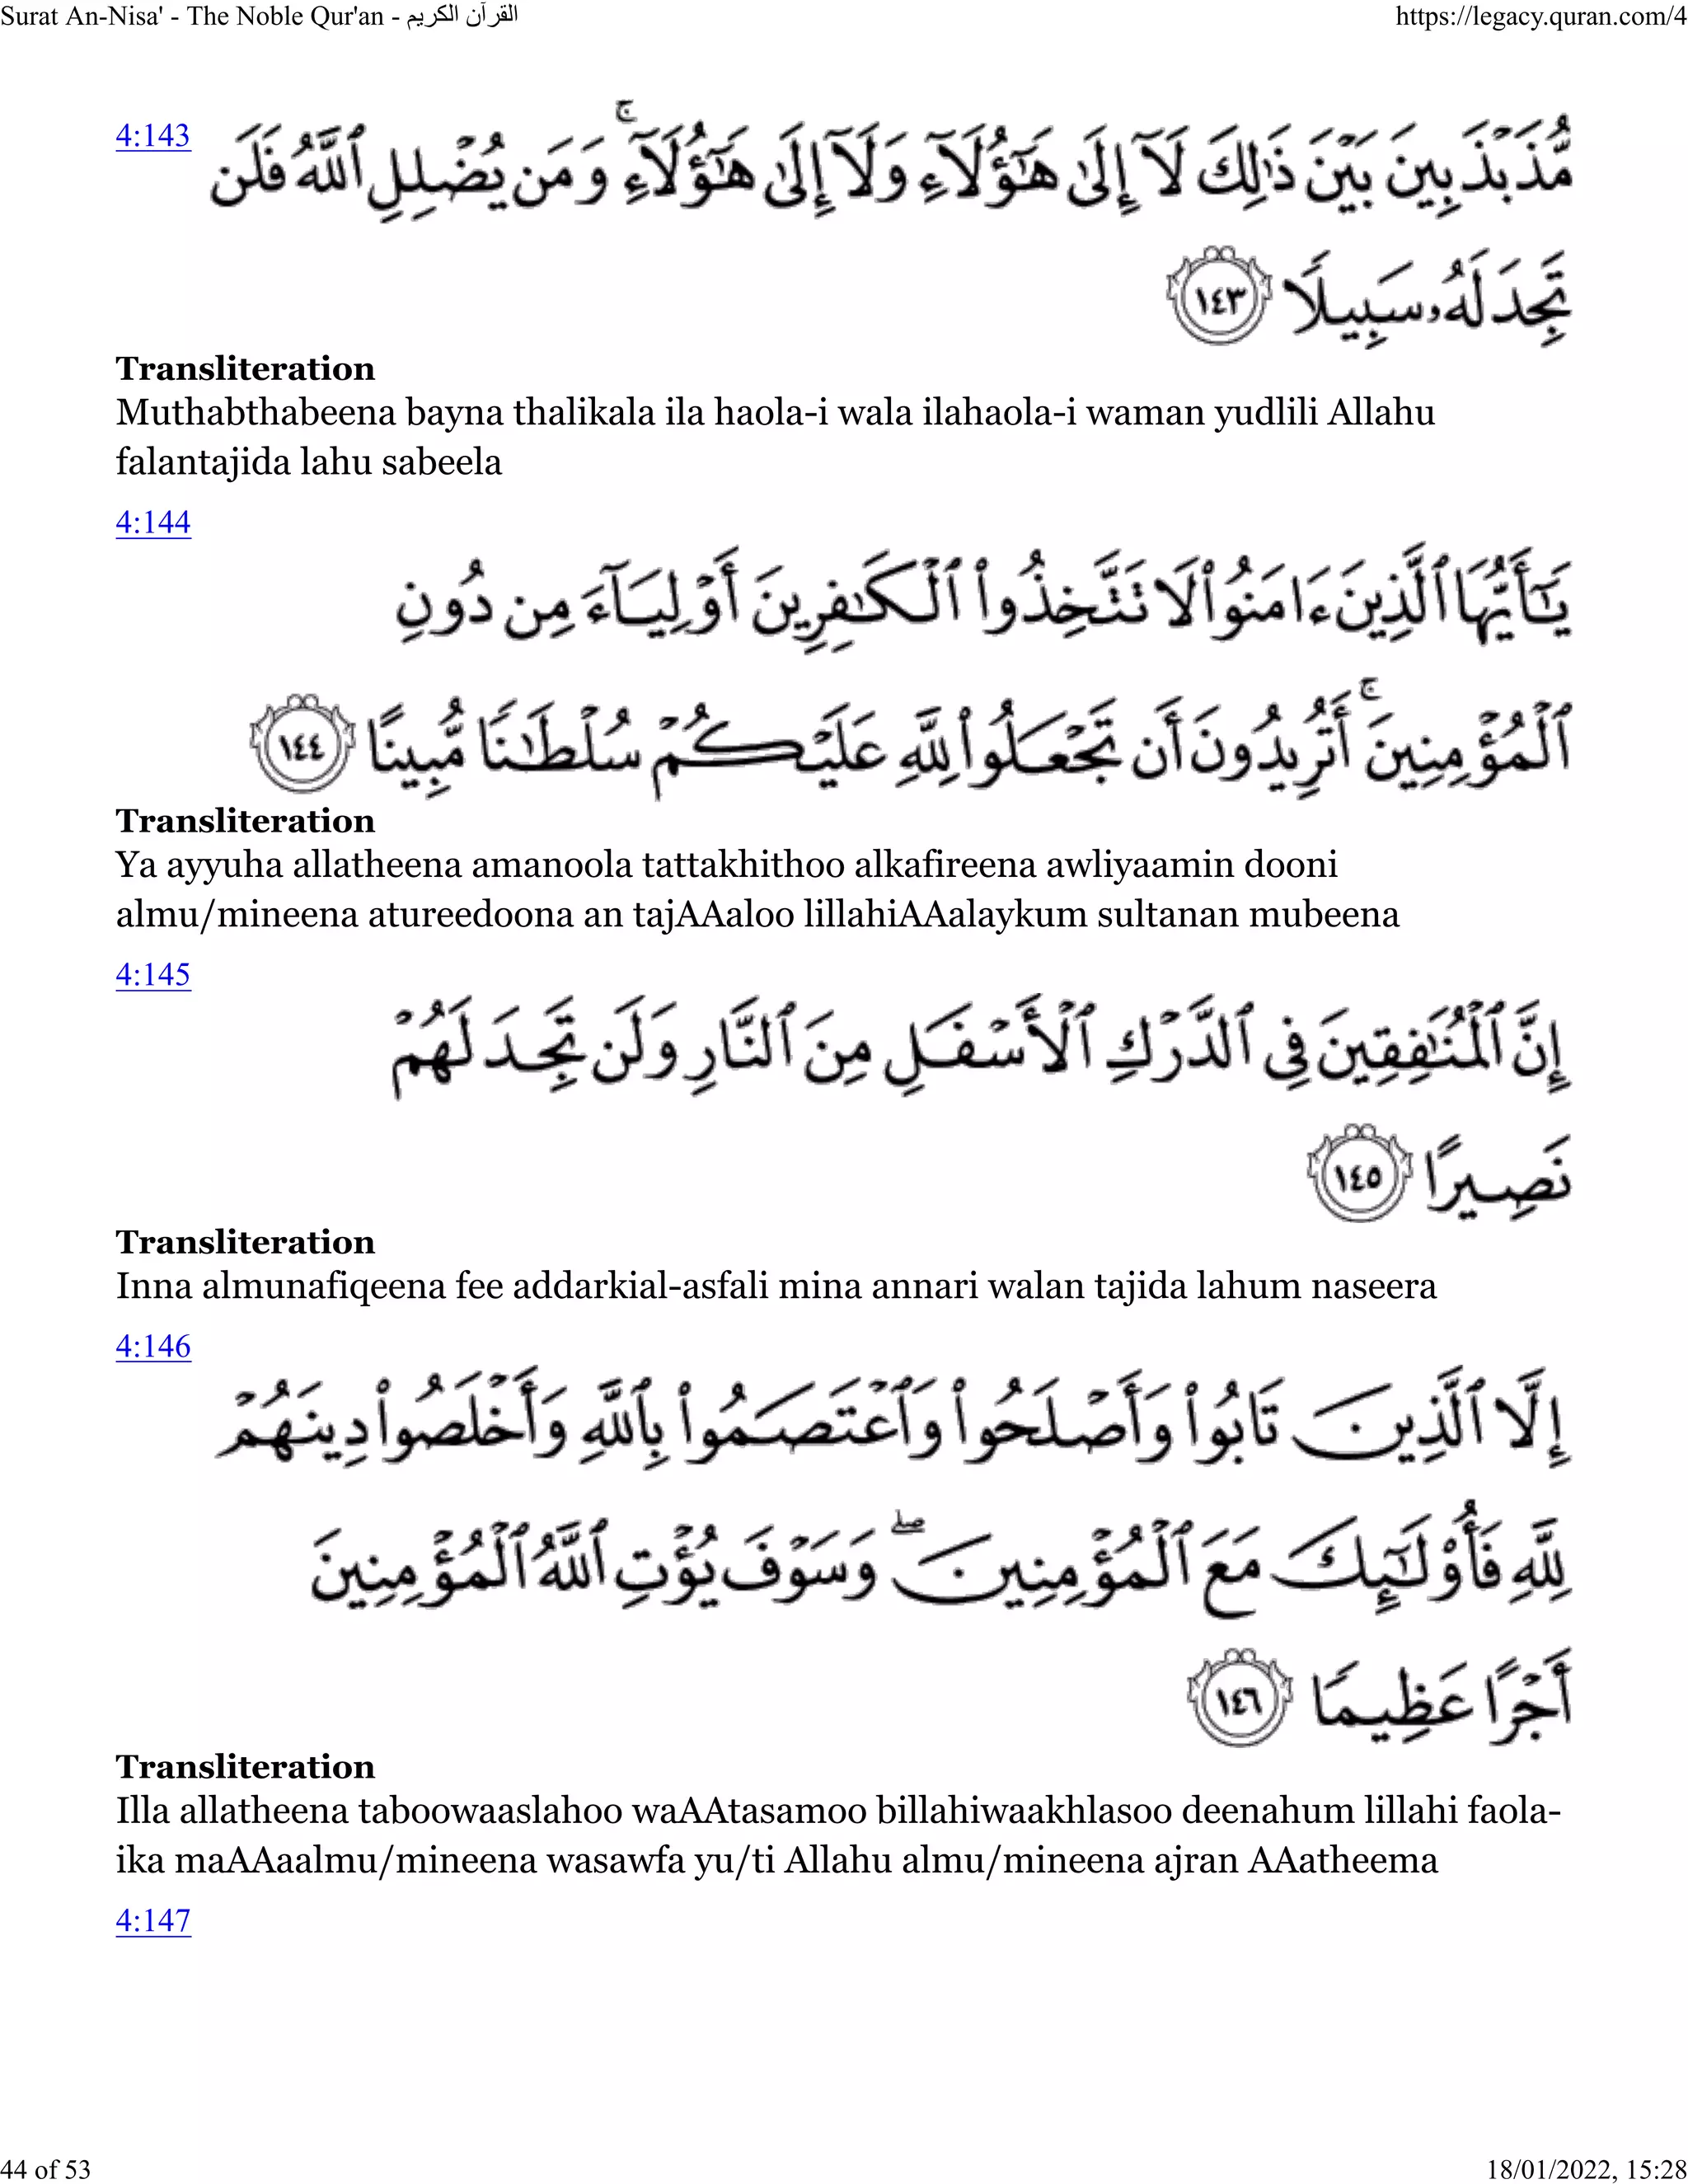 Surat An-Nisa' - The Noble Qur'an - القرآن الكريم https://legacy.quran.com/4
4:143
مُّذَبْذَبِينَ بَيْنَ ذَٰلِكَ لَآ إِلَىٰ هَـٰٓؤُلَآءِ وَلَآ إِلَىٰ هَـٰٓؤُلَآءِ ۚ وَمَن يُضْلِلِ ٱللَّهُ فَلَن
تَجِدَ لَهُۥ سَبِيلًا ١٤٣
Transliteration
Muthabthabeena bayna thalikala ila haola-i wala ilahaola-i waman yudlili Allahu
falantajida lahu sabeela
4:144
يَـٰٓأَيُّهَا ٱلَّذِينَ ءَامَنُوا۟ لَا تَتَّخِذُوا۟ ٱلْكَـٰفِرِينَ أَوْلِيَآءَ مِن دُونِ
ٱلْمُؤْمِنِينَ ۚ أَتُرِيدُونَ أَن تَجْعَلُوا۟ لِلَّهِ عَلَيْكُمْ سُلْطَـٰنًا مُّبِينًا ١٤٤
Transliteration
Ya ayyuha allatheena amanoola tattakhithoo alkafireena awliyaamin dooni
almu/mineena atureedoona an tajAAaloo lillahiAAalaykum sultanan mubeena
4:145
إِنَّ ٱلْمُنَـٰفِقِينَ فِى ٱلدَّرْكِ ٱلْأَسْفَلِ مِنَ ٱلنَّارِ وَلَن تَجِدَ لَهُمْ
نَصِيرًا ١٤٥
Transliteration
Inna almunafiqeena fee addarkial-asfali mina annari walan tajida lahum naseera
4:146
إِلَّا ٱلَّذِينَ تَابُوا۟ وَأَصْلَحُوا۟ وَٱعْتَصَمُوا۟ بِٱللَّهِ وَأَخْلَصُوا۟ دِينَهُمْ
لِلَّهِ فَأُو۟لَـٰٓئِكَ مَعَ ٱلْمُؤْمِنِينَ ۖ وَسَوْفَ يُؤْتِ ٱللَّهُ ٱلْمُؤْمِنِينَ
أَجْرًا عَظِيمًا ١٤٦
Transliteration
Illa allatheena taboowaaslahoo waAAtasamoo billahiwaakhlasoo deenahum lillahi faola-
ika maAAaalmu/mineena wasawfa yu/ti Allahu almu/mineena ajran AAatheema
4:147
44 of 53 18/01/2022, 15:28